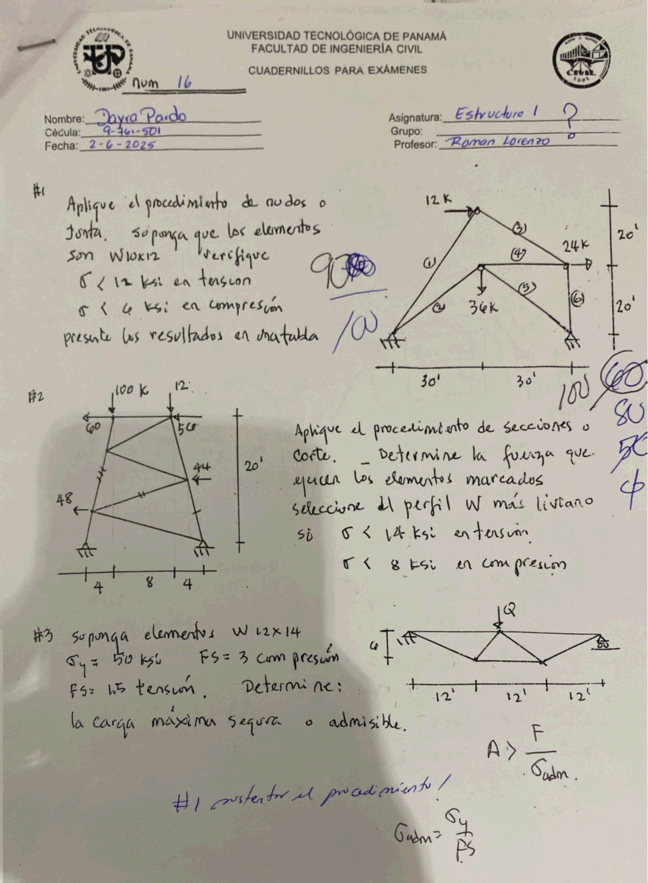 UNIVERSIDAD TECNOLÓGICA DE PANAMÁ
FACULTAD DE INGENIERÍA CIVIL
CUADERNILLOS PARA EXÁMENES
num 16
Nombre: Dayra Pardo
Cédula: 9-761-501
Fecha: 2-6-2025
Asignatura: Estructura 1 ?
Grupo:
Profesor: Roman Lorenzo
#1
Aplique el procedimiento de nudos o
Junta. Suponga que los elementos
son W10x12 verifique
σ < 12 ksi en tension
σ < 6 ksi en compresión
presente los resultados en una tabla
90
100
12K
24K
36K
(1)
(2)
(3)
(4)
(5)
(6)
20'
20'
30'
30'
100
60
80
50
#2
100 K
12
60
50
44
48
20'
4
8
4
Aplique el procedimiento de secciones o
corte. _ Determine la fuerza que
ejercen los elementos marcados
seleccione el perfil W más liviano
si σ < 14 ksi en tensión.
σ < 8 ksi en compresión
#3 suponga elementos W 12x14
σy = 50 ksi FS = 3 compresión
FS = 1.5 tensión. Determine:
la carga máxima segura o admisible.
Q
6
12'
12'
12'
A > F / σadm.
#1 sustentar el procedimiento!
σadm = σy / FS